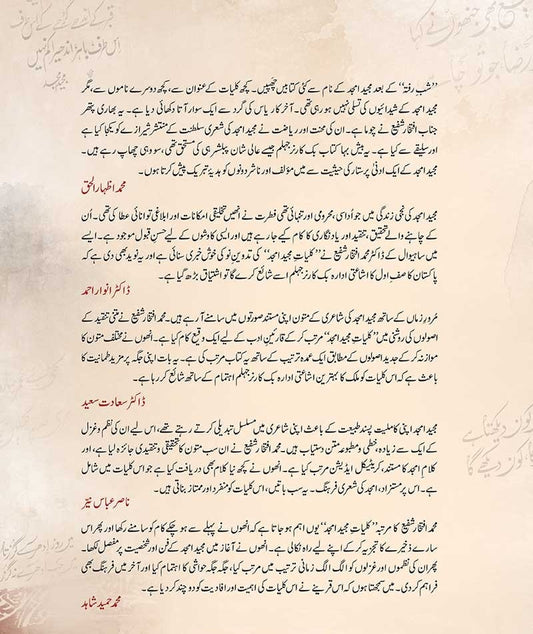 ’’شبِ رفتہ‘‘ کے بعد مجید امجد کے نام سے کئی کتابیں چھپیں۔ کچھ کلیات کے عنوان سے، کچھ دوسرے ناموں سے، مگر
مجید امجد کے شیدائیوں کی تسلی نہیں ہو رہی تھی۔ آخرکار یاس کی گرد سے ایک سوار آتا دکھائی دیا ہے۔ یہ بھاری پتھر
جناب افتخار شفیع نے چوما ہے۔ ان کی محنت اور ریاضت نے مجید امجد کی شعری سلطنت کے منتشر شیرازے کو یکجا کیا ہے
اور سلیقے سے کیا ہے۔ یہ بیش بہا کتاب بک کارنر جہلم جیسے عالی شان پبلشر ہی کی مستحق تھی، سو وہی چھاپ رہے ہیں۔
مجید امجد کے ایک ادنیٰ پرستار کی حیثیت سے میں مؤلف اور ناشر دونوں کو ہدیۂ تبریک پیش کرتا ہوں۔
محمد اظہار الحق
مجید امجد کی نجی زندگی میں جو اُداسی، محرومی اور تنہائی تھی فطرت نے انھیں تخلیقی امکانات اور ابلاغی توانائی عطا کی تھی۔ اُن
کے چاہنے والے تحقیق، تنقید اور یادنگاری کا کام کیے جا رہے ہیں اور ایسی کاوشوں کے لیے حسنِ قبول موجود ہے۔ ایسے
میں ساہیوال کے ڈاکٹر محمد افتخار شفیع نے ’’کلیاتِ مجید امجد‘‘ کی تدوینِ نو کی خوش خبری سنائی ہے اور یہ نوید بھی دی ہے کہ
پاکستان کا صفِ اول کا اشاعتی ادارہ بک کارنر جہلم اسے شائع کرے گا تو اشتیاق بڑھ گیا ہے۔
ڈاکٹر انوار احمد
مُرورِ زماں کے ساتھ مجید امجد کی شاعری کے متون اپنی مستند صورتوں میں سامنے آ رہے ہیں۔ محمد افتخار شفیع نے متنی تنقید کے
اصولوں کی روشنی میں ’’کلیاتِ مجید امجد‘‘ مرتب کر کے قارئینِ ادب کے لیے ایک وقیع کام کیا ہے۔ انھوں نے مختلف متون کا
موازنہ کر کے جدید اصولوں کے مطابق ایک عمدہ ترتیب کے ساتھ یہ کتاب مرتب کی ہے۔ یہ بات اپنی جگہ پر مزید طمانیت کا
باعث ہے کہ اس کلیات کو ملک کا بہترین اشاعتی ادارہ بک کارنر جہلم اہتمام کے ساتھ شائع کر رہا ہے۔
ڈاکٹر سعادت سعید
مجید امجد اپنی کاملیت پسند طبیعت کے باعث اپنی شاعری میں مسلسل تبدیلی کرتے رہتے تھے، اس لیے ان کی نظم و غزل
کے ایک سے زیادہ، خطی و مطبوعہ متن دستیاب ہیں۔ محمد افتخار شفیع نے ان سب متون کا تحقیقی و تنقیدی جائزہ لیا ہے، اور
کلامِ امجد کا مستند، کریٹیکل ایڈیشن مرتب کیا ہے۔ انھوں نے کچھ نیا کلام بھی دریافت کیا ہے جو اس کلیات میں شامل
ہے۔ اس پر مستزاد، امجد کی شعری فرہنگ۔ یہ سب باتیں، اس کلیات کو منفرد اور ممتاز بناتی ہیں۔
ناصر عباس نیّر
محمد افتخار شفیع کا مرتبہ ’’کلیاتِ مجید امجد‘‘ یوں اہم ہو جاتا ہے کہ انھوں نے پہلے سے ہو چکے کام کو سامنے رکھا اور پھر اس
سارے ذخیرے کا تجزیہ کر کے اپنے لیے راہ نکالی ہے۔ انھوں نے آغاز میں مجید امجد کے فن اور شخصیت پر مفصل لکھا۔
پھر ان کی نظموں اور غزلوں کو الگ الگ زمانی ترتیب میں مرتب کیا، جگہ جگہ حواشی کا اہتمام کیا اور آخر میں فرہنگ بھی
فراہم کر دی۔ میں سمجھتا ہوں کہ اس قرینے نے اس کلیات کی اہمیت اور افادیت کو دو چند کر دیا ہے۔
محمد حمید شاہد